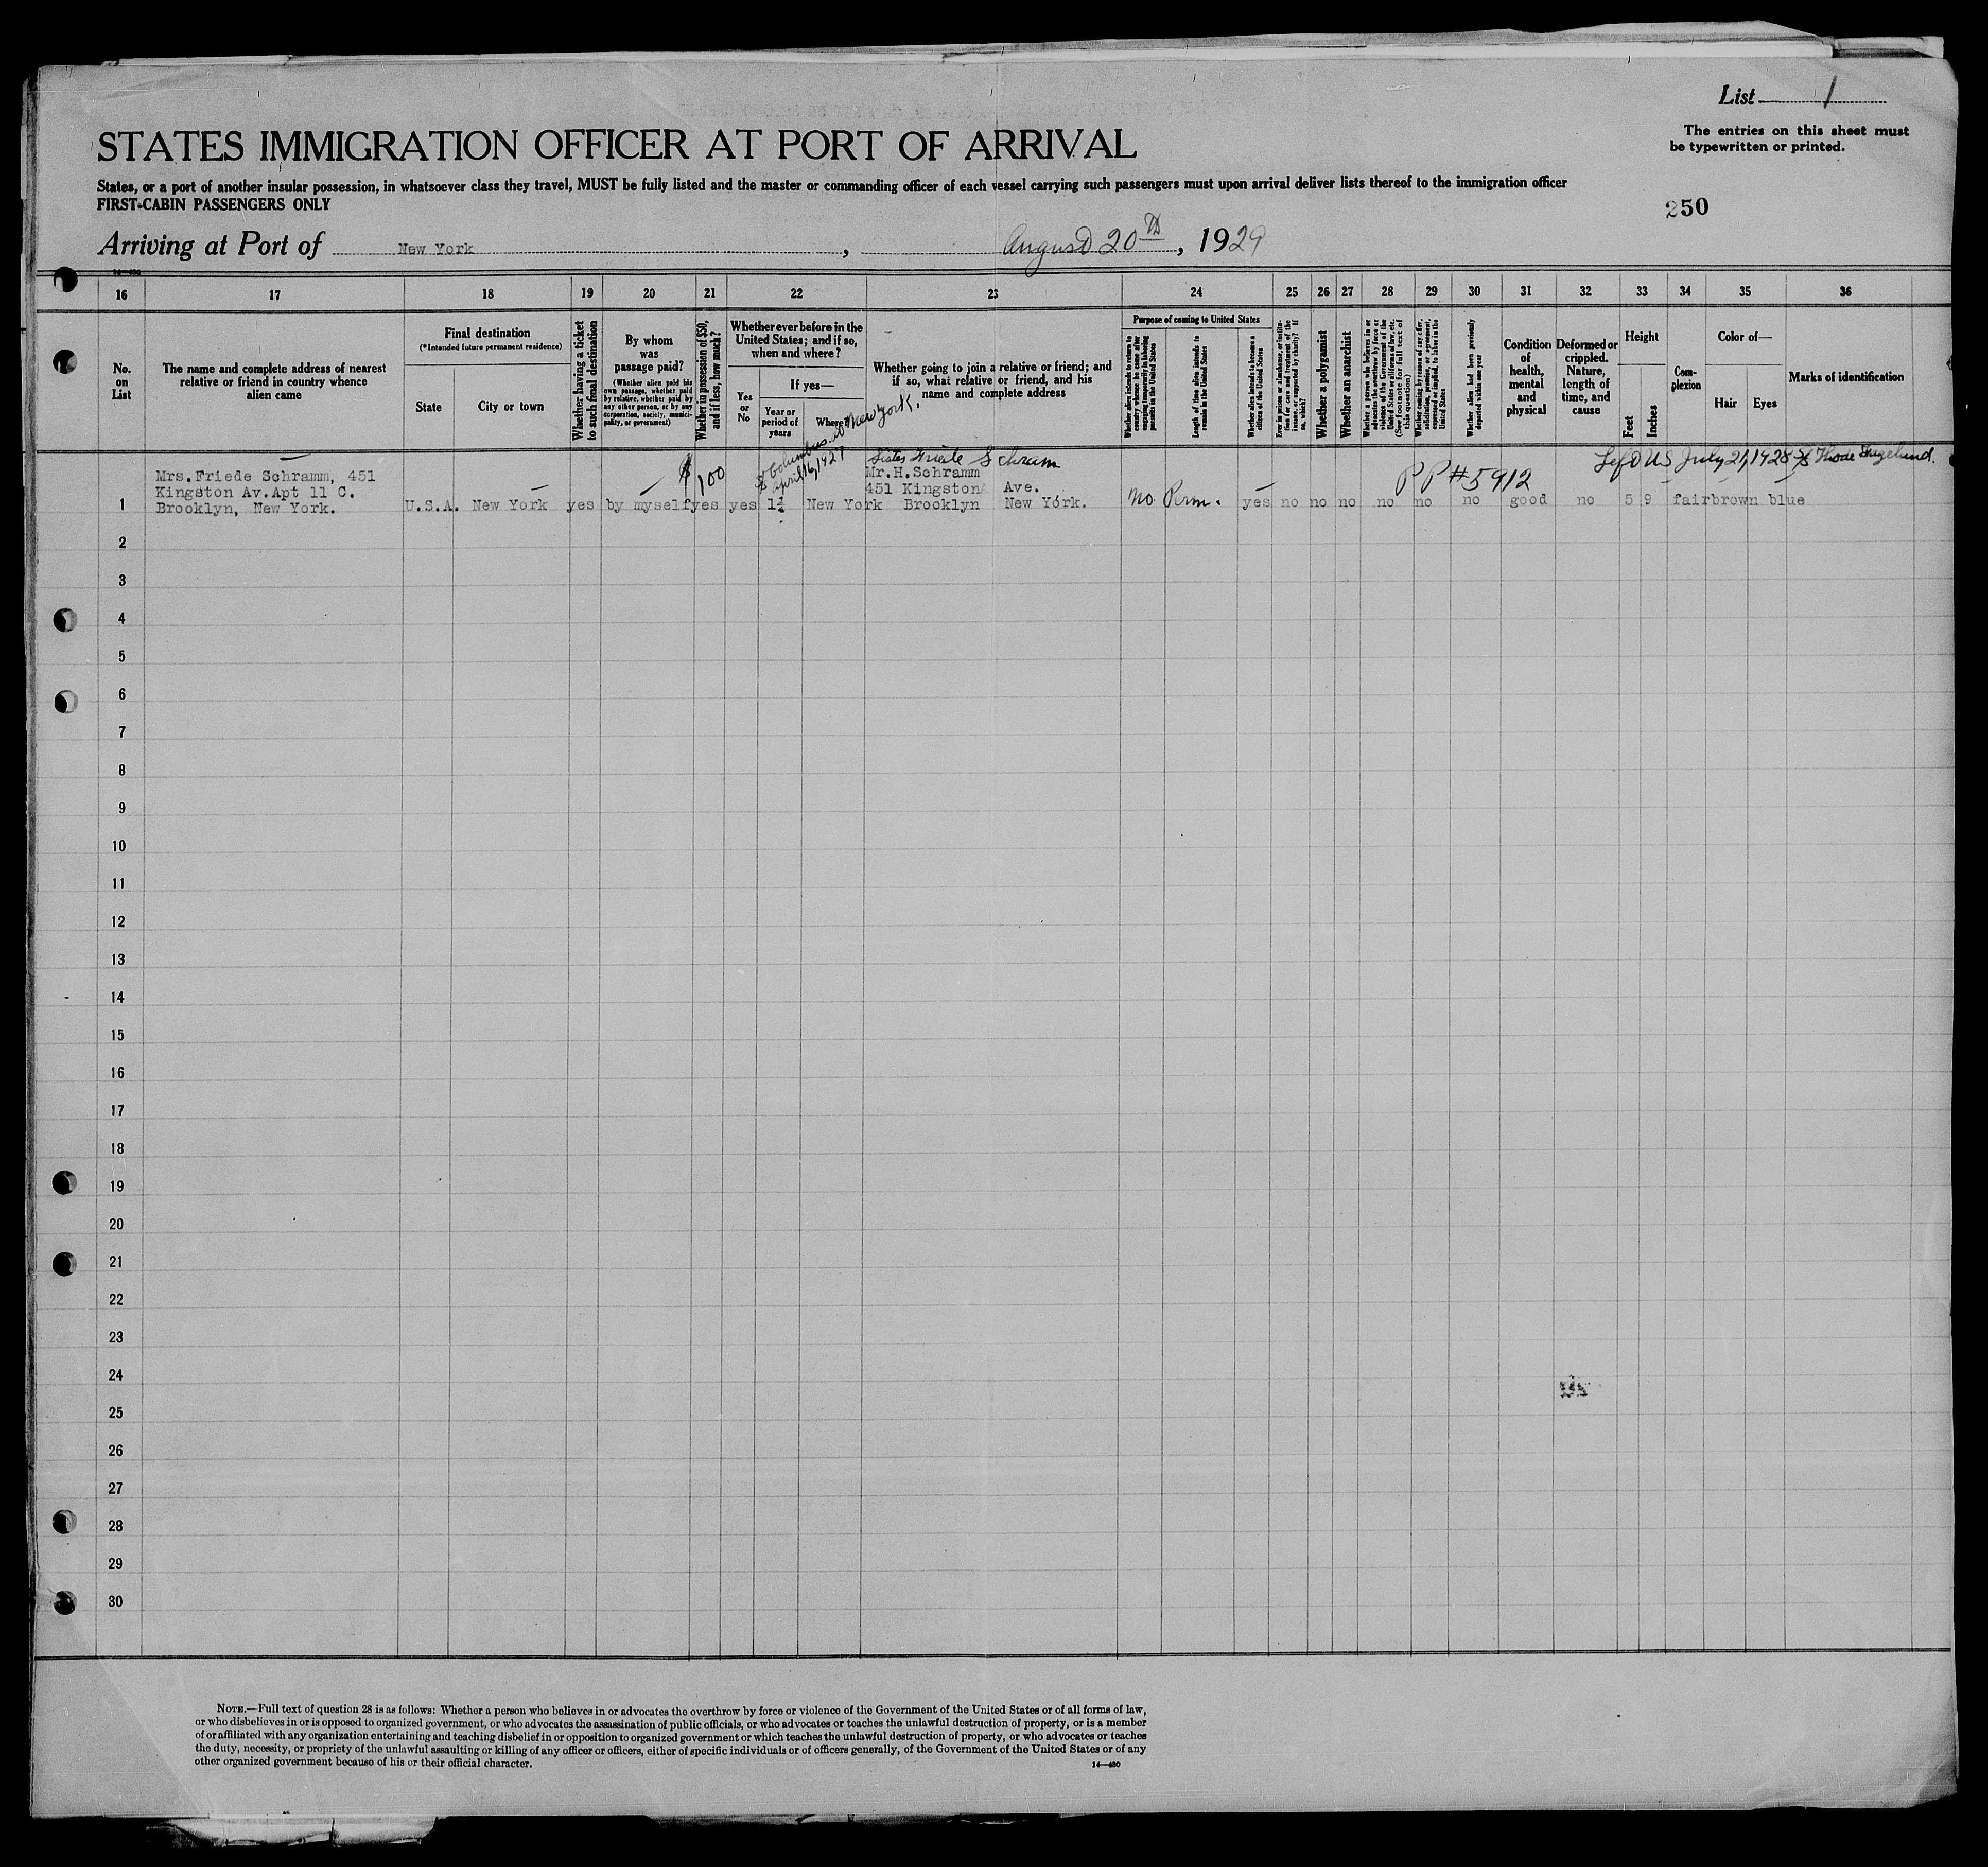 List 1
The entries on this sheet must
be typewritten or printed.
STATES IMMIGRATION OFFICER AT PORT OF ARRIVAL
States, or a port of another insular possession, in whatsoever class they travel, MUST be fully listed and the master or commanding officer of each vessel carrying such passengers must upon arrival deliver lists thereof to the immigration officer
FIRST-CABIN PASSENGERS ONLY
250
Arriving at Port of New York, August 20th, 1929
14—480
16 17 18 19 20 21 22 23 24 25 26 27 28 29 30 31 32 33 34 35 36
No.
on
List
The name and complete address of nearest
relative or friend in country whence
alien came
Final destination
(*Intended future permanent residence)
State
City or town
Whether having a ticket
to such final destination
By whom
was
passage paid?
(Whether alien paid his
own passage, whether paid
by relative, whether paid by
any other person, or by any
corporation, society, munici-
pality, or government)
Whether in possession of $50,
and if less, how much?
Whether ever before in the
United States; and if so,
when and where?
Yes
or
No
If yes—
Year or
period of
years
Where?
Whether going to join a relative or friend; and
if so, what relative or friend, and his
name and complete address
Purpose of coming to United States
Whether alien intends to return to
country whence he came after
engaging temporarily in laboring
pursuits in the United States
Length of time alien intends to
remain in the United States
Whether alien intends to become a
citizen of the United States
Ever in prison or almshouse, or institu-
tion for care and treatment of the
insane, or supported by charity? If
so, which?
Whether a polygamist
Whether an anarchist
Whether a person who believes in or
advocates the overthrow by force or
violence of the Government of the
United States or all forms of law, etc.
(See footnote for full text of
this question)
Whether coming by reason of any offer,
solicitation, promise, or agreement,
expressed or implied, to labor in the
United States
Whether alien had been previously
deported within one year
Condition
of
health,
mental
and
physical
Deformed or
crippled.
Nature,
length of
time, and
cause
Height
Feet
Inches
Com-
plexion
Color of—
Hair
Eyes
Marks of identification
Columbus at New York,
April 16, 1927
$100
Sister Friede Schram
PP #5912
Left US July 21, 1928
Mrs. Friede Schramm, 451
Kingston Av. Apt 11 C.
Brooklyn, New York.
Mr. H. Schramm
451 Kingston Ave.
Brooklyn New York.
1 U.S.A. New York yes by myself yes yes 1½ New York no Perm. yes no no no no no no good no 5 9 fair brown blue
2
3
4
5
6
7
8
9
10
11
12
13
14
15
16
17
18
19
20
21
22
23
24
25
26
27
28
29
30
NOTE.—Full text of question 28 is as follows: Whether a person who believes in or advocates the overthrow by force or violence of the Government of the United States or of all forms of law,
or who disbelieves in or is opposed to organized government, or who advocates the assassination of public officials, or who advocates or teaches the unlawful destruction of property, or is a member
of or affiliated with any organization entertaining and teaching disbelief in or opposition to organized government or which teaches the unlawful destruction of property, or who advocates or teaches
the duty, necessity, or propriety of the unlawful assaulting or killing of any officer or officers, either of specific individuals or of officers generally, of the Government of the United States or of any
other organized government because of his or their official character.
14—480